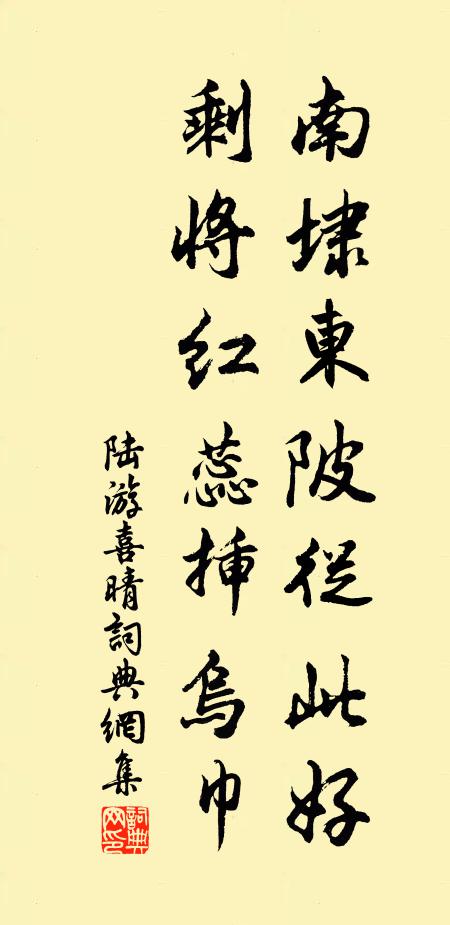 南埭東陂從此好
剩將紅蕊插烏巾
陸游喜晴詞典網集
詞典网印